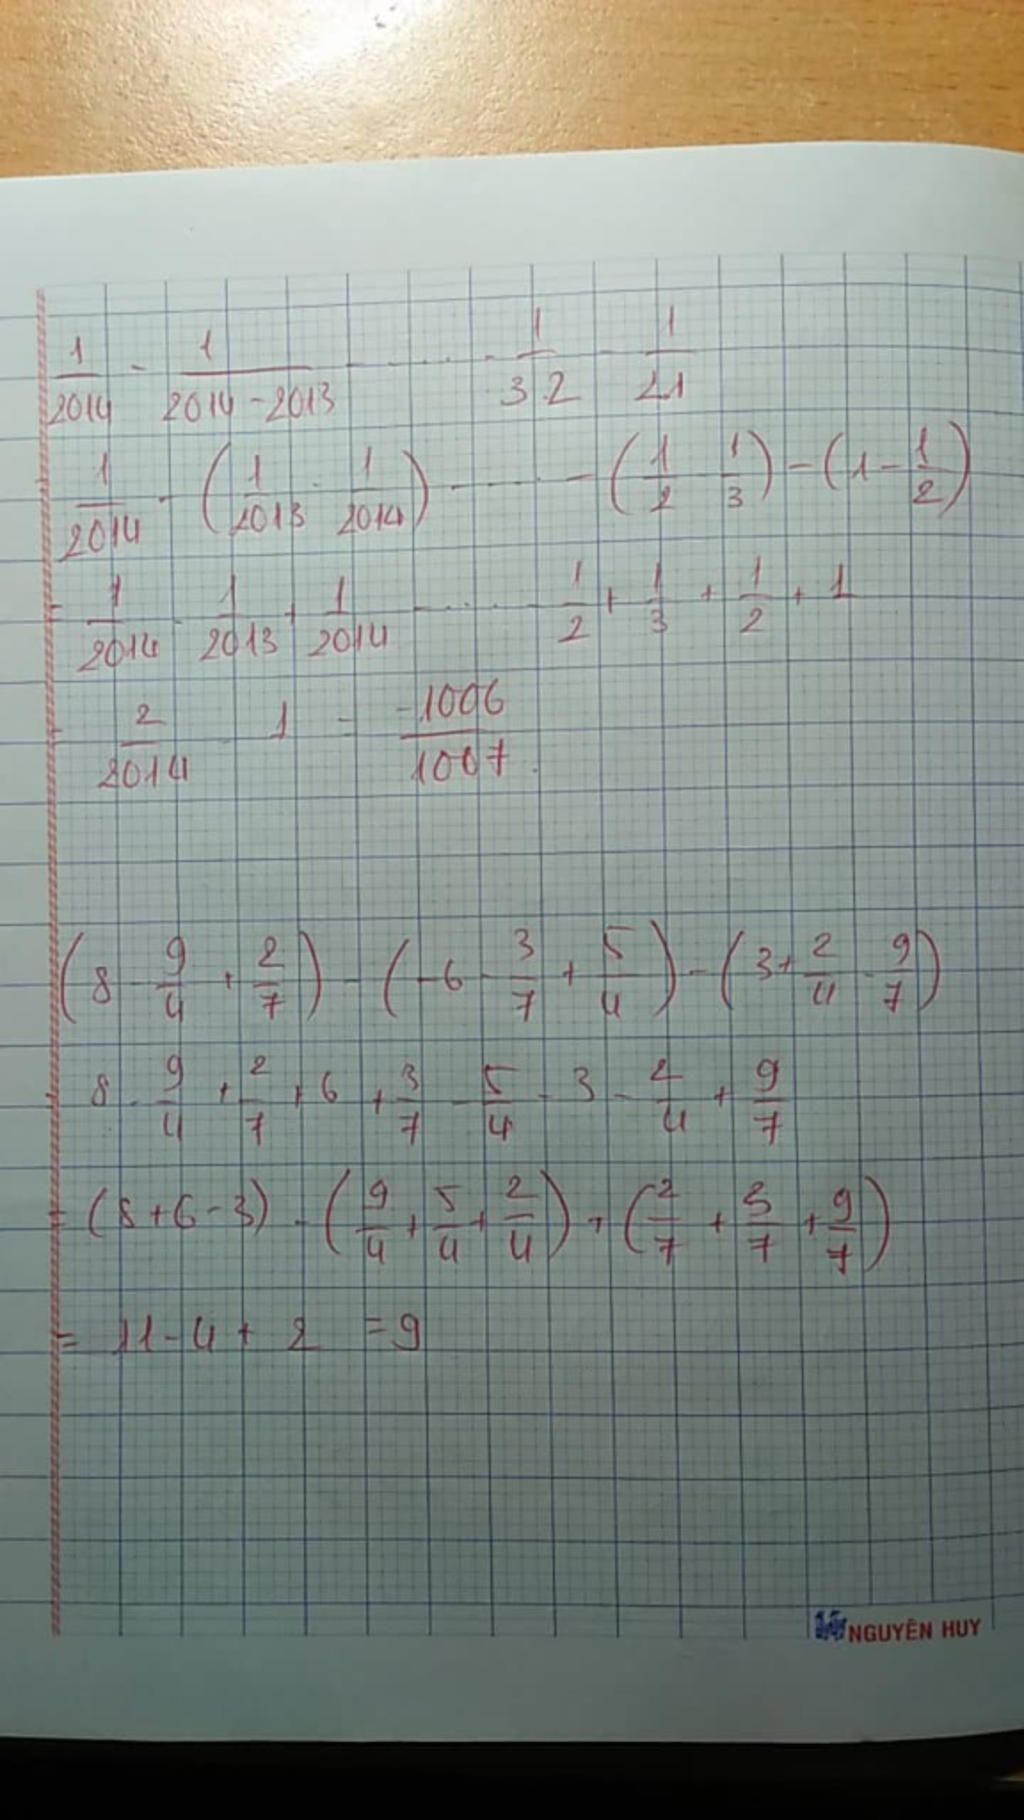 1/2014 - 1/(2014 - 2013) - ..... - 1/(3.2) - 1/(2.1)
1/2014 - (1/2013 - 1/2014) - ..... - (1/2 - 1/3) - (1 - 1/2)
= 1/2014 - 1/2013 + 1/2014 - ..... 1/2 + 1/3 + 1/2 + 1
= 2/2014 - 1 = -1006/1007.
(8 - 9/4 + 2/7) - (-6 - 3/7 + 5/4) - (3 + 2/4 - 9/7)
= 8 - 9/4 + 2/7 + 6 + 3/7 - 5/4 - 3 - 2/4 + 9/7
= (8 + 6 - 3) - (9/4 + 5/4 + 2/4) + (2/7 + 3/7 + 9/7)
= 11 - 4 + 2 = 9
NGUYÊN HUY